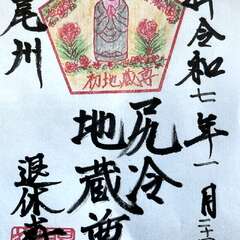 令和七年一月二十
初地蔵尊
尻冷
地蔵尊
尾州
退休寺